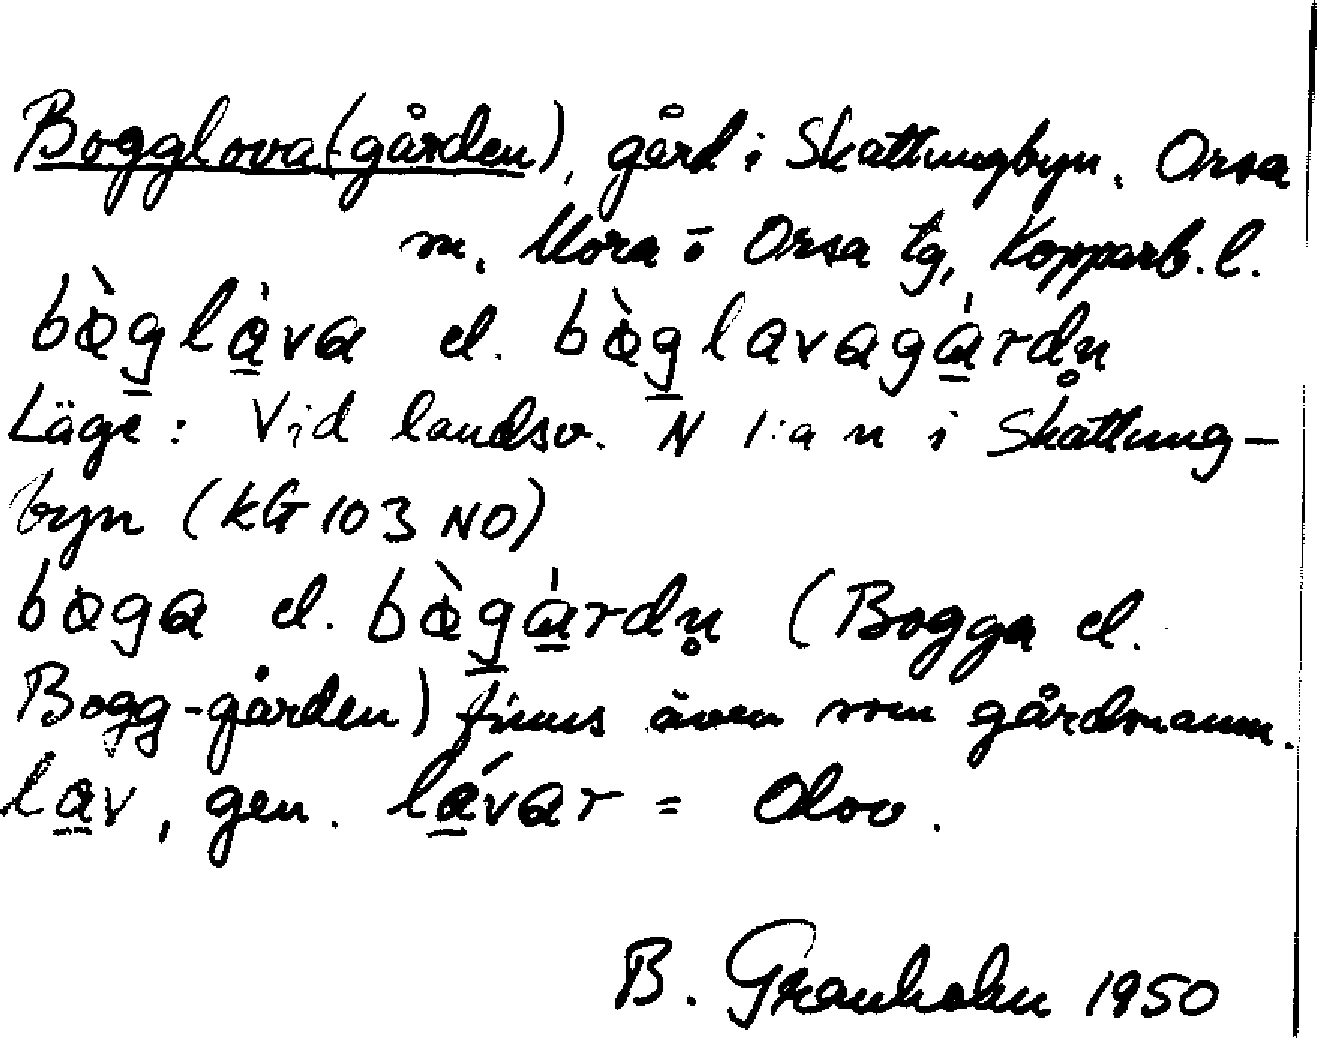 Bogglova(gården), gård i Skattungbyn, Orsa
m. Mora o Orsa tg, Kopparb. l.
bòglàva el. bòglavagárdn̥
Läge: Vid landsv. N l:a n i Skattung-
byn (KG 103 NO)
boga el. bògárdn̥ (Bogga el.
Bogg-gården) finns även som gårdsnamn.
lav, gen. lávar = Olov.
B. Granholm 1950